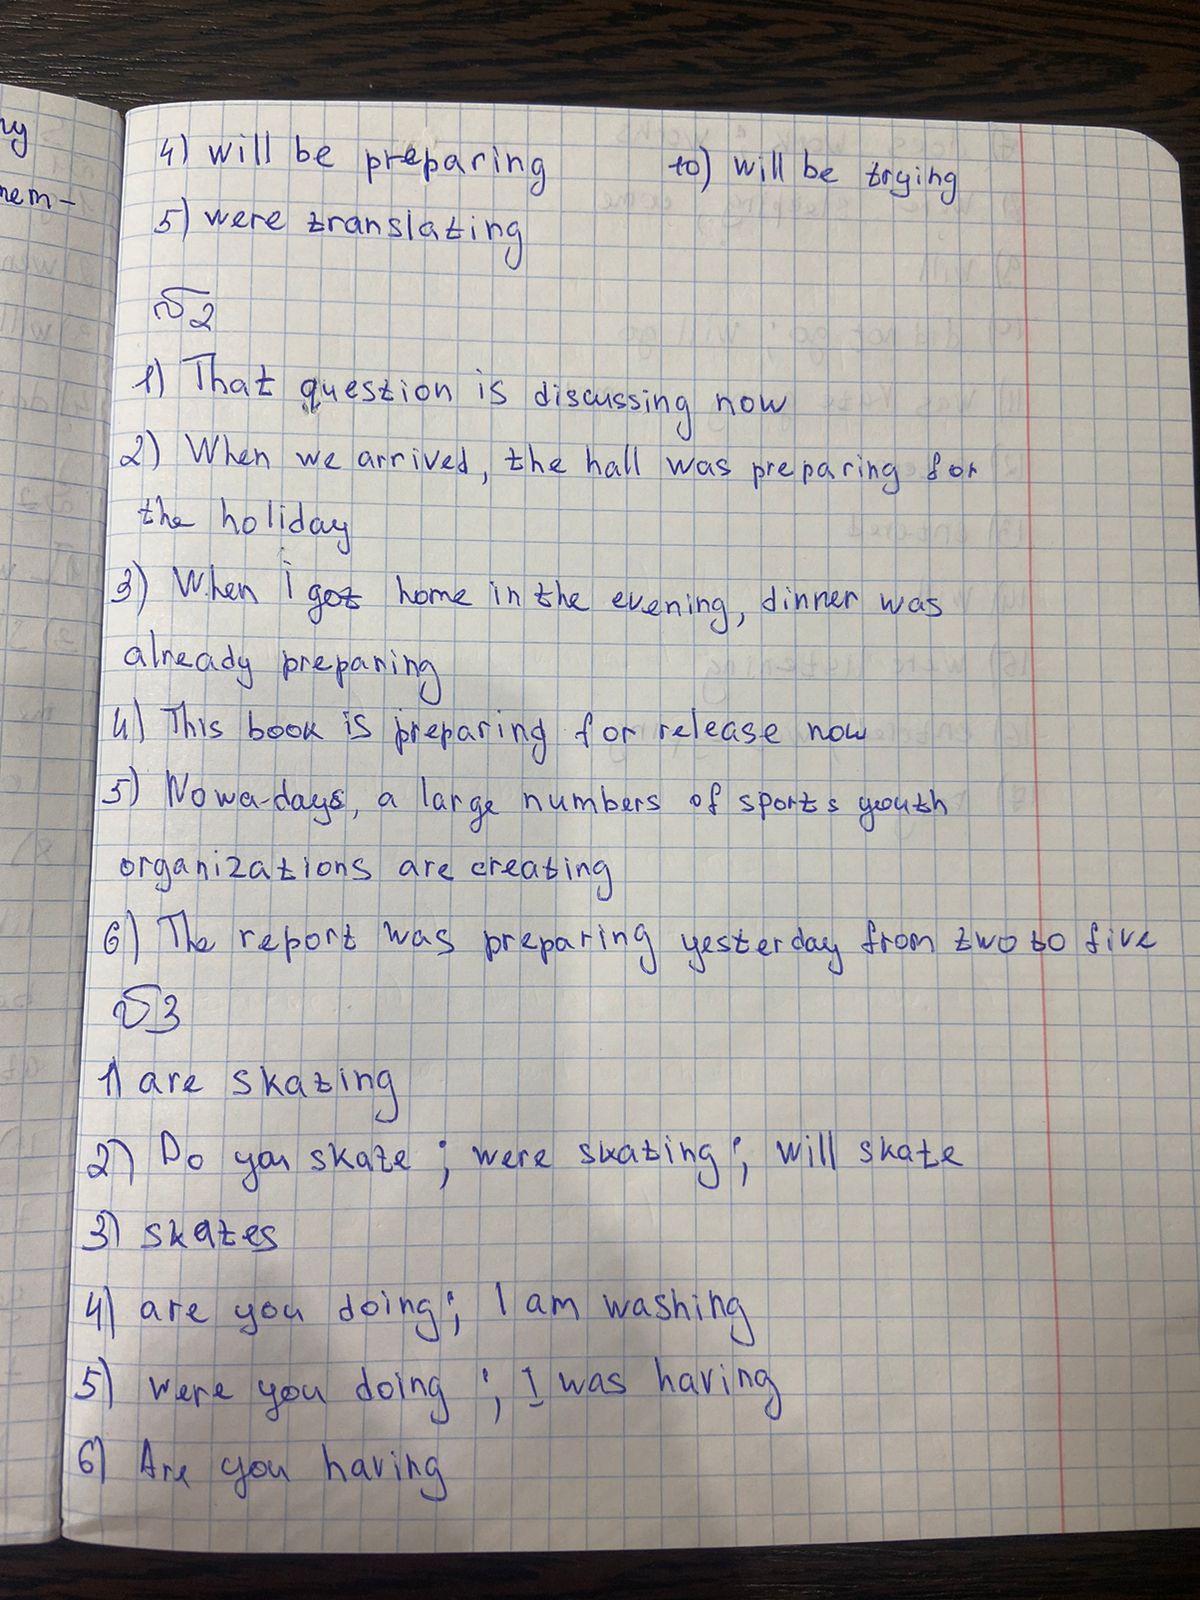 ny
nem-
4) will be preparing
10) will be trying
5) were translating
√2
1) That question is discussing now
2) When we arrived, the hall was preparing for
the holiday
3) When i got home in the evening, dinner was
already preparing
4) This book is preparing for release now
5) Nowa-days, a large numbers of sports youth
organizations are creating
6) The report was preparing yesterday from two to five
√3
1) are skating
2) Do you skate ; were skating ; will skate
3) skates
4) are you doing ; I am washing
5) were you doing ; I was having
6) Are you having